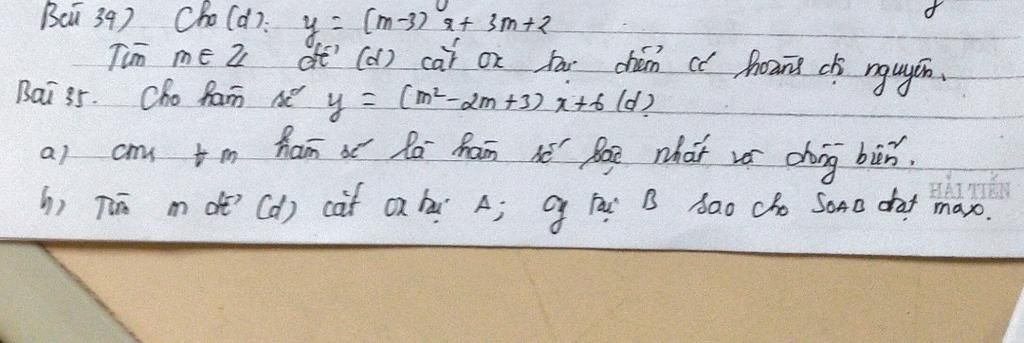 Bài 34) Cho (d): y = (m-3) x + 3m+2
Tìm m ∈ Z để (d) cắt ox tại điểm có hoành độ nguyên.
Bài 35. Cho hàm số y = (m²-2m+3) x+6 (d)
a) cmr ∀ m hàm số là hàm số bậc nhất và đồng biến.
b) Tìm m để (d) cắt ox tại A; oy tại B sao cho SOAB đạt max.
HẢI TIẾN